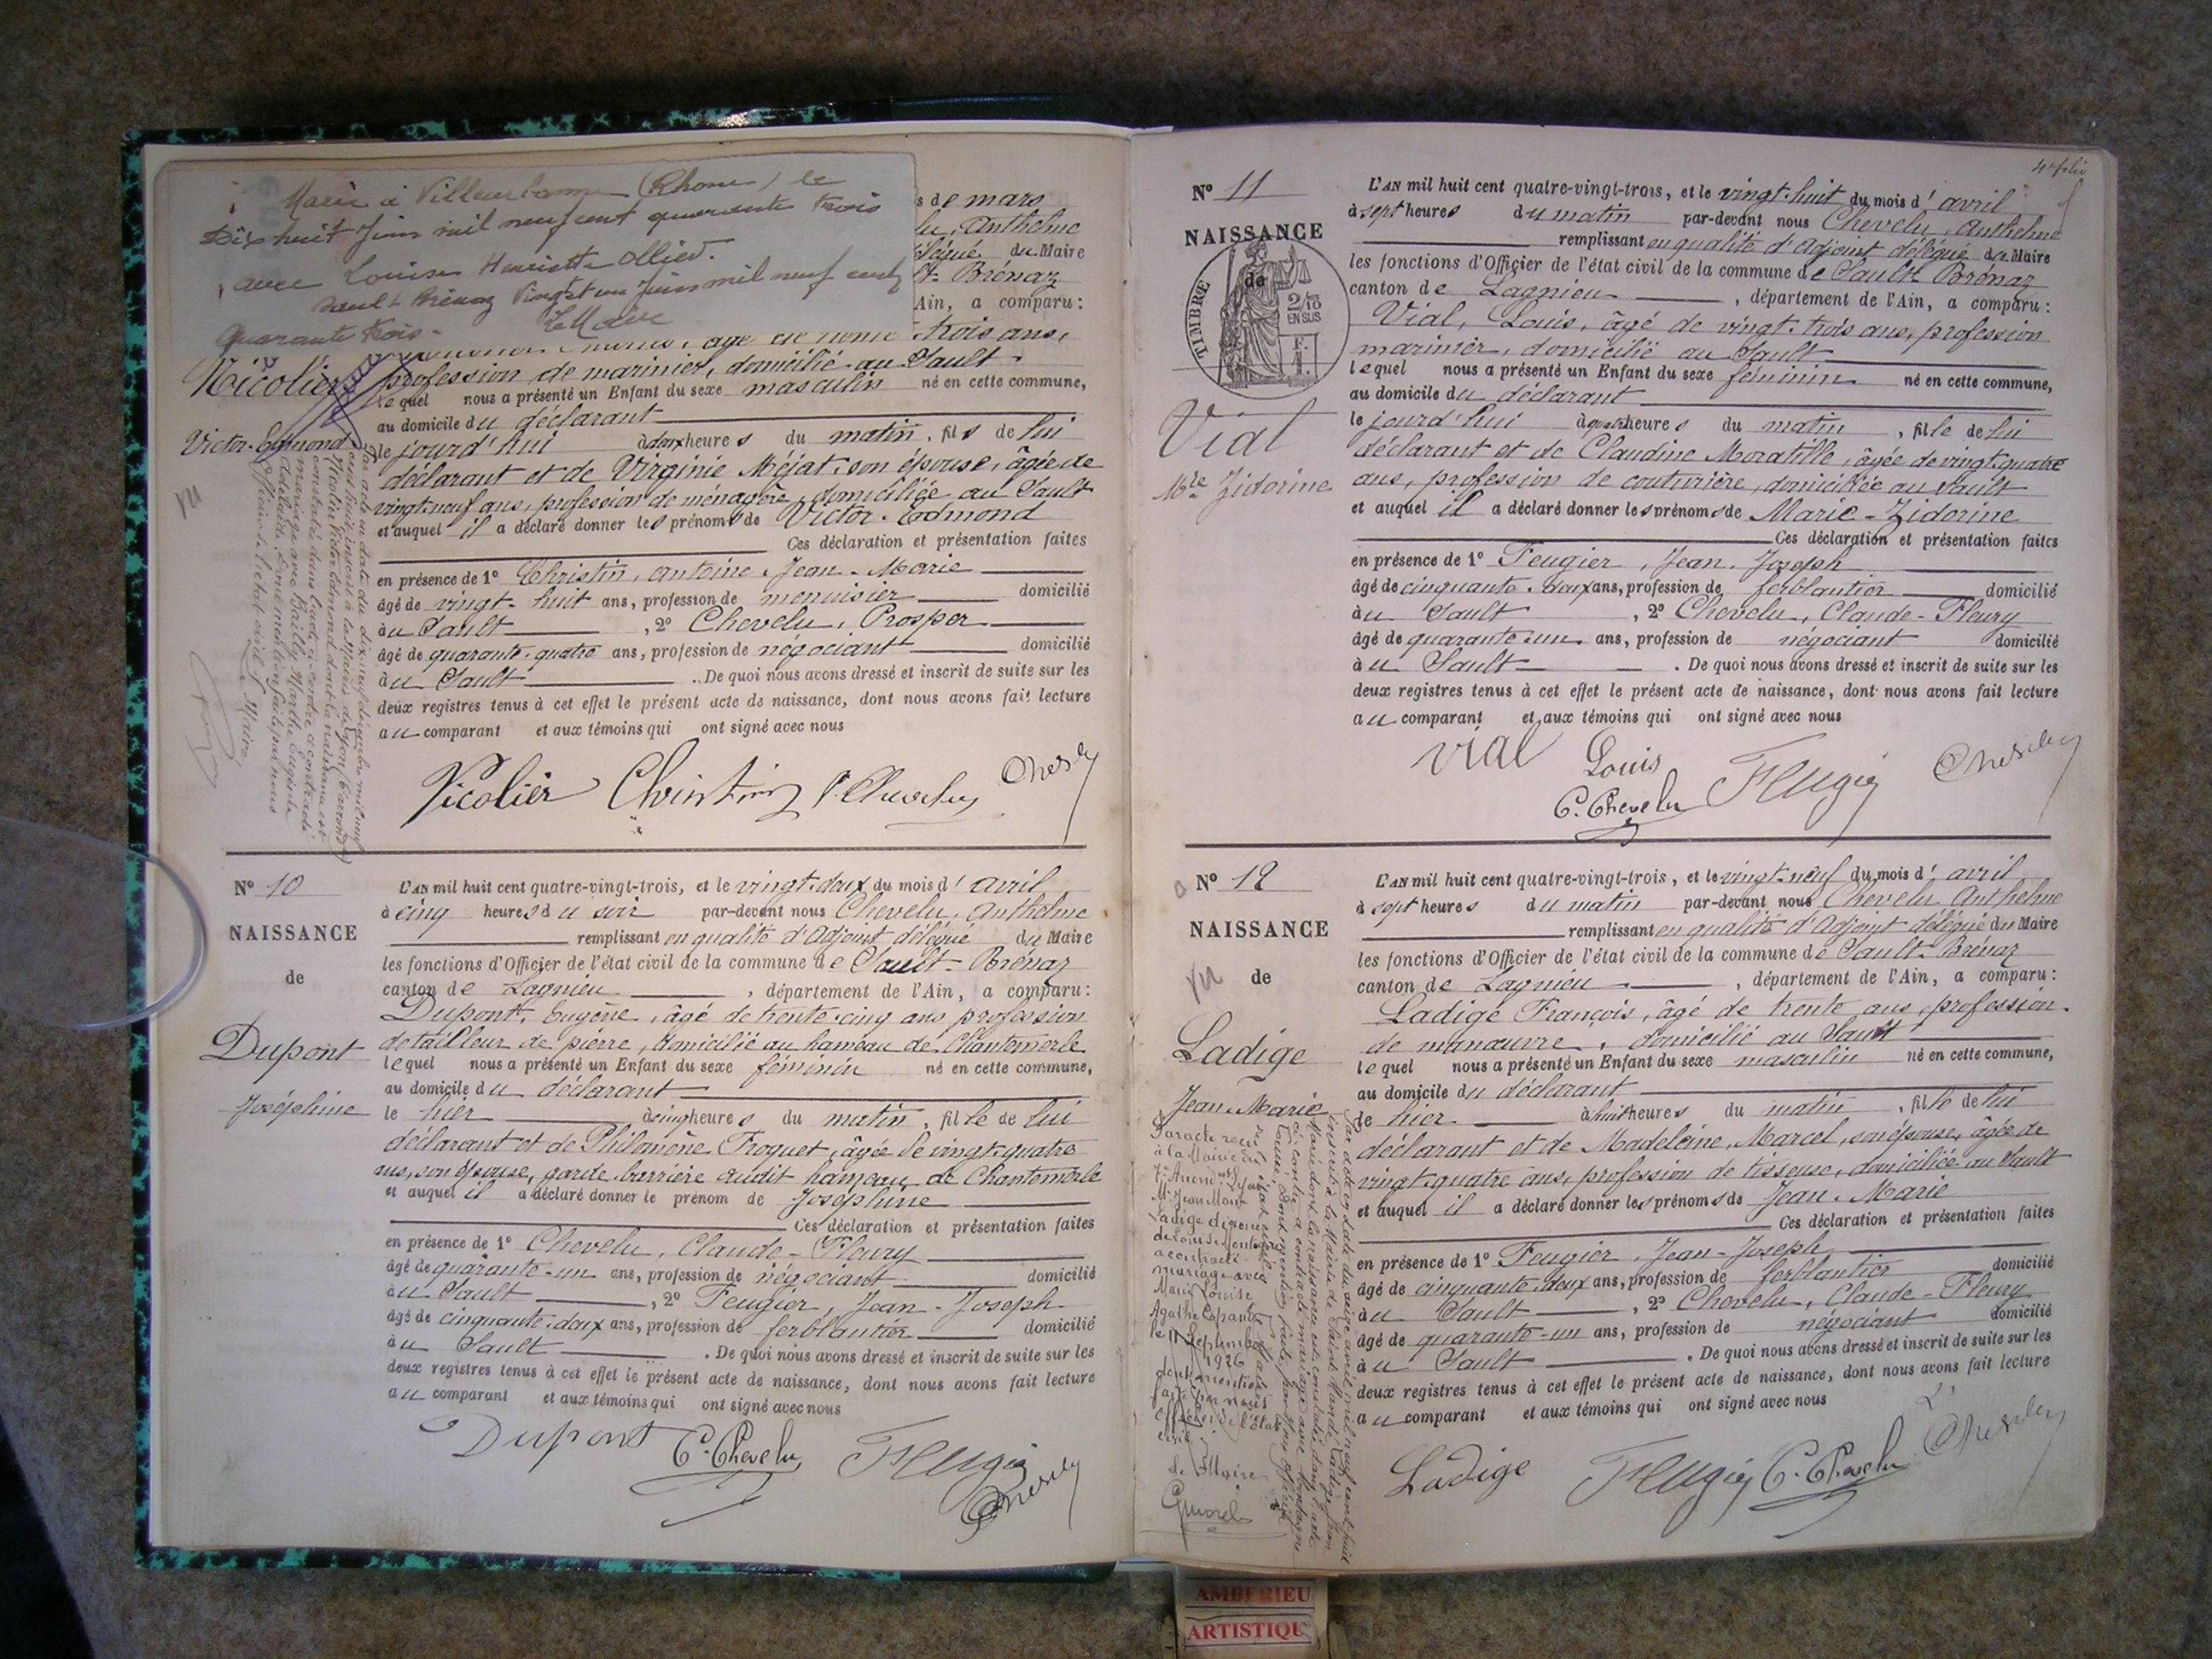 Marié à Villeurbanne (Rhône) le
Dix huit Juin mil neuf cent quarante trois
avec Louise Henriette Ollier.
Sault Brénaz Vingt et un Juin mil neuf cent
quarante trois. Le Maire
s de mars
lu, Anthelme
légué du Maire
lt-Brénaz
Ain, a comparu :
trois ans,
Nicolier
profession de marinier, domicilié au Sault
lequel nous a présenté un Enfant du sexe masculin né en cette commune,
au domicile du déclarant
Victor-Edmond
le jourd'hui à deux heures du matin, fils de lui
déclarant et de Virginie Méjat, son épouse, âgée de
vingt-neuf ans, profession de ménagère, domiciliée au Sault
et auquel il a déclaré donner les prénoms de Victor-Edmond
Ces déclaration et présentation faites
en présence de 1° Christin, Antoine-Jean-Marie
âgé de vingt-huit ans, profession de menuisier domicilié
au Sault, 2° Chevelu, Prosper
âgé de quarante-quatre ans, profession de négociant domicilié
au Sault. De quoi nous avons dressé et inscrit de suite sur les
deux registres tenus à cet effet le présent acte de naissance, dont nous avons fait lecture
au comparant et aux témoins qui ont signé avec nous
Nicolier Christin P. Chevelu Chevelu
Par acte en date du dix neuf décembre mil neuf
cent huit inscrit à la Mairie de
Nicolier Victor Edmond dont la naissance est
constatée dans l'acte ci-contre a contracté
mariage avec Bailly Marthe Eugénie
Adélaïde. Dont mention faite par nous
officier de l'état civil. Le Maire,
vu
N° 10
NAISSANCE
de
Dupont
Joséphine
L'AN mil huit cent quatre-vingt-trois, et le vingt-deux du mois d'avril
à cinq heures du soir par-devant nous Chevelu, Anthelme
remplissant en qualité d'Adjoint délégué du Maire
les fonctions d'Officier de l'état civil de la commune de Sault-Brénaz
canton de Lagnieu, département de l'Ain, a comparu :
Dupont, Eugène, âgé de trente-cinq ans profession
de tailleur de pierre, domicilié au hameau de Chantemerle
lequel nous a présenté un Enfant du sexe féminin né en cette commune,
au domicile du déclarant
le hier à cinq heures du matin, fille de lui
déclarant et de Philomène Froquet, âgée de vingt-quatre
ans, son épouse, garde-barrière audit hameau de Chantemerle
et auquel il a déclaré donner le prénom de Joséphine
Ces déclaration et présentation faites
en présence de 1° Chevelu, Claude-Fleury
âgé de quarante-un ans, profession de négociant domicilié
au Sault, 2° Feugier, Jean-Joseph
âgé de cinquante-deux ans, profession de ferblantier domicilié
au Sault. De quoi nous avons dressé et inscrit de suite sur les
deux registres tenus à cet effet le présent acte de naissance, dont nous avons fait lecture
au comparant et aux témoins qui ont signé avec nous
Dupont C. Chevelu Feugier Chevelu
4e folio
N° 11
NAISSANCE
de
TIMBRE
2/10
EN SUS
F.
1.
Vial
Mie Zidorine
L'AN mil huit cent quatre-vingt-trois, et le vingt-huit du mois d'avril
à sept heures du matin par-devant nous Chevelu, Anthelme
remplissant en qualité d'Adjoint délégué du Maire
les fonctions d'Officier de l'état civil de la commune de Sault-Brénaz
canton de Lagnieu, département de l'Ain, a comparu :
Vial, Louis, âgé de vingt-trois ans, profession
marinier, domicilié au Sault
lequel nous a présenté un Enfant du sexe féminin né en cette commune,
au domicile du déclarant
le jourd'hui à quatre heures du matin, fille de lui
déclarant et de Claudine Moratille, âgée de vingt-quatre
ans, profession de couturière, domiciliée au Sault
et auquel il a déclaré donner les prénoms de Marie-Zidorine
Ces déclaration et présentation faites
en présence de 1° Feugier, Jean-Joseph
âgé de cinquante-deux ans, profession de ferblantier domicilié
au Sault, 2° Chevelu, Claude-Fleury
âgé de quarante-un ans, profession de négociant domicilié
au Sault. De quoi nous avons dressé et inscrit de suite sur les
deux registres tenus à cet effet le présent acte de naissance, dont nous avons fait lecture
au comparant et aux témoins qui ont signé avec nous
Vial Louis C. Chevelu Feugier Chevelu
N° 12
NAISSANCE
vu de
Ladige
Jean-Marie
L'AN mil huit cent quatre-vingt-trois, et le vingt-neuf du mois d'avril
à sept heures du matin par-devant nous Chevelu Anthelme
remplissant en qualité d'Adjoint délégué du Maire
les fonctions d'Officier de l'état civil de la commune de Sault-Brénaz
canton de Lagnieu, département de l'Ain, a comparu :
Ladige François, âgé de trente ans, profession
de manœuvre, domicilié au Sault
lequel nous a présenté un Enfant du sexe masculin né en cette commune,
au domicile du déclarant
le hier à huit heures du matin, fils de lui
déclarant et de Madeleine Marcel, son épouse, âgée de
vingt-quatre ans, profession de tisseuse, domiciliée au Sault
et auquel il a déclaré donner les prénoms de Jean-Marie
Ces déclaration et présentation faites
en présence de 1° Feugier, Jean-Joseph
âgé de cinquante-deux ans, profession de ferblantier domicilié
au Sault, 2° Chevelu, Claude-Fleury
âgé de quarante-un ans, profession de négociant domicilié
au Sault. De quoi nous avons dressé et inscrit de suite sur les
deux registres tenus à cet effet le présent acte de naissance, dont nous avons fait lecture
au comparant et aux témoins qui ont signé avec nous
Ladige Feugier C. Chevelu Chevelu
Par acte reçu
à la Mairie du
7e Arrondt Lyon
Mr Jean Marie
Ladige divorcé
de Louise Montagne
a contracté
mariage avec
Marie Louise
Agathe
le 11 Septembre
1926
dont mention
faite par nous
officier de l'état
civil
Le Maire
Par acte en date du seize avril mil neuf cent huit
inscrit à la Mairie de Saint Mandé, Ladige Jean
Marie dont la naissance est constatée dans l'acte
ci-contre a contracté mariage avec Montagne
Louise, dont mention faite par nous officier
de l'état civil
AMBERIEU
ARTISTIQU